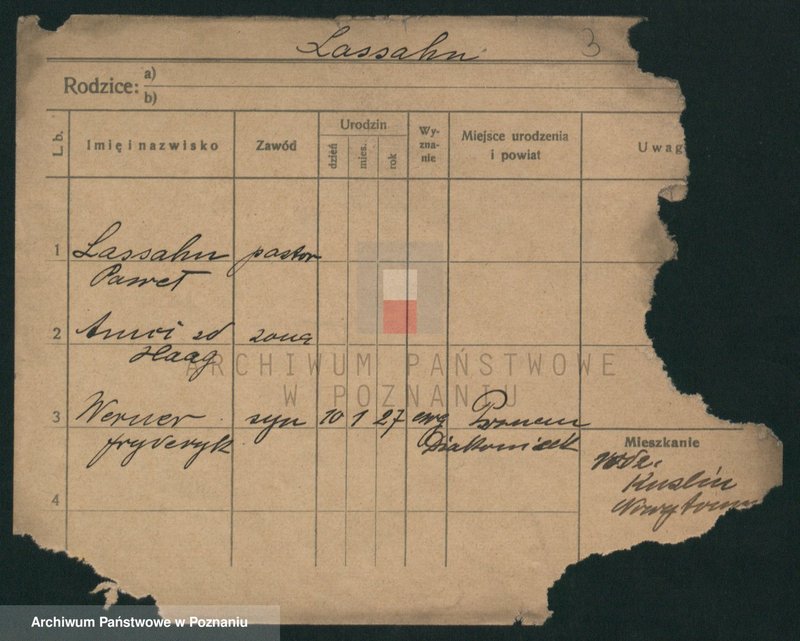 Lassahn 3
Rodzice: a)
b)
L. b. Imię i nazwisko Zawód Urodzin dzień mies. rok Wy-zna-nie Miejsce urodzenia i powiat Uwag
1 Lassahn pastor
Paweł
2 żona
Haag
3 Werner syn 10 1 27 ewg
Fryderyk
Mieszkanie
Kuślin
4
ARCHIWUM PAŃSTWOWE
W POZNANIU
Archiwum Państwowe w Poznaniu